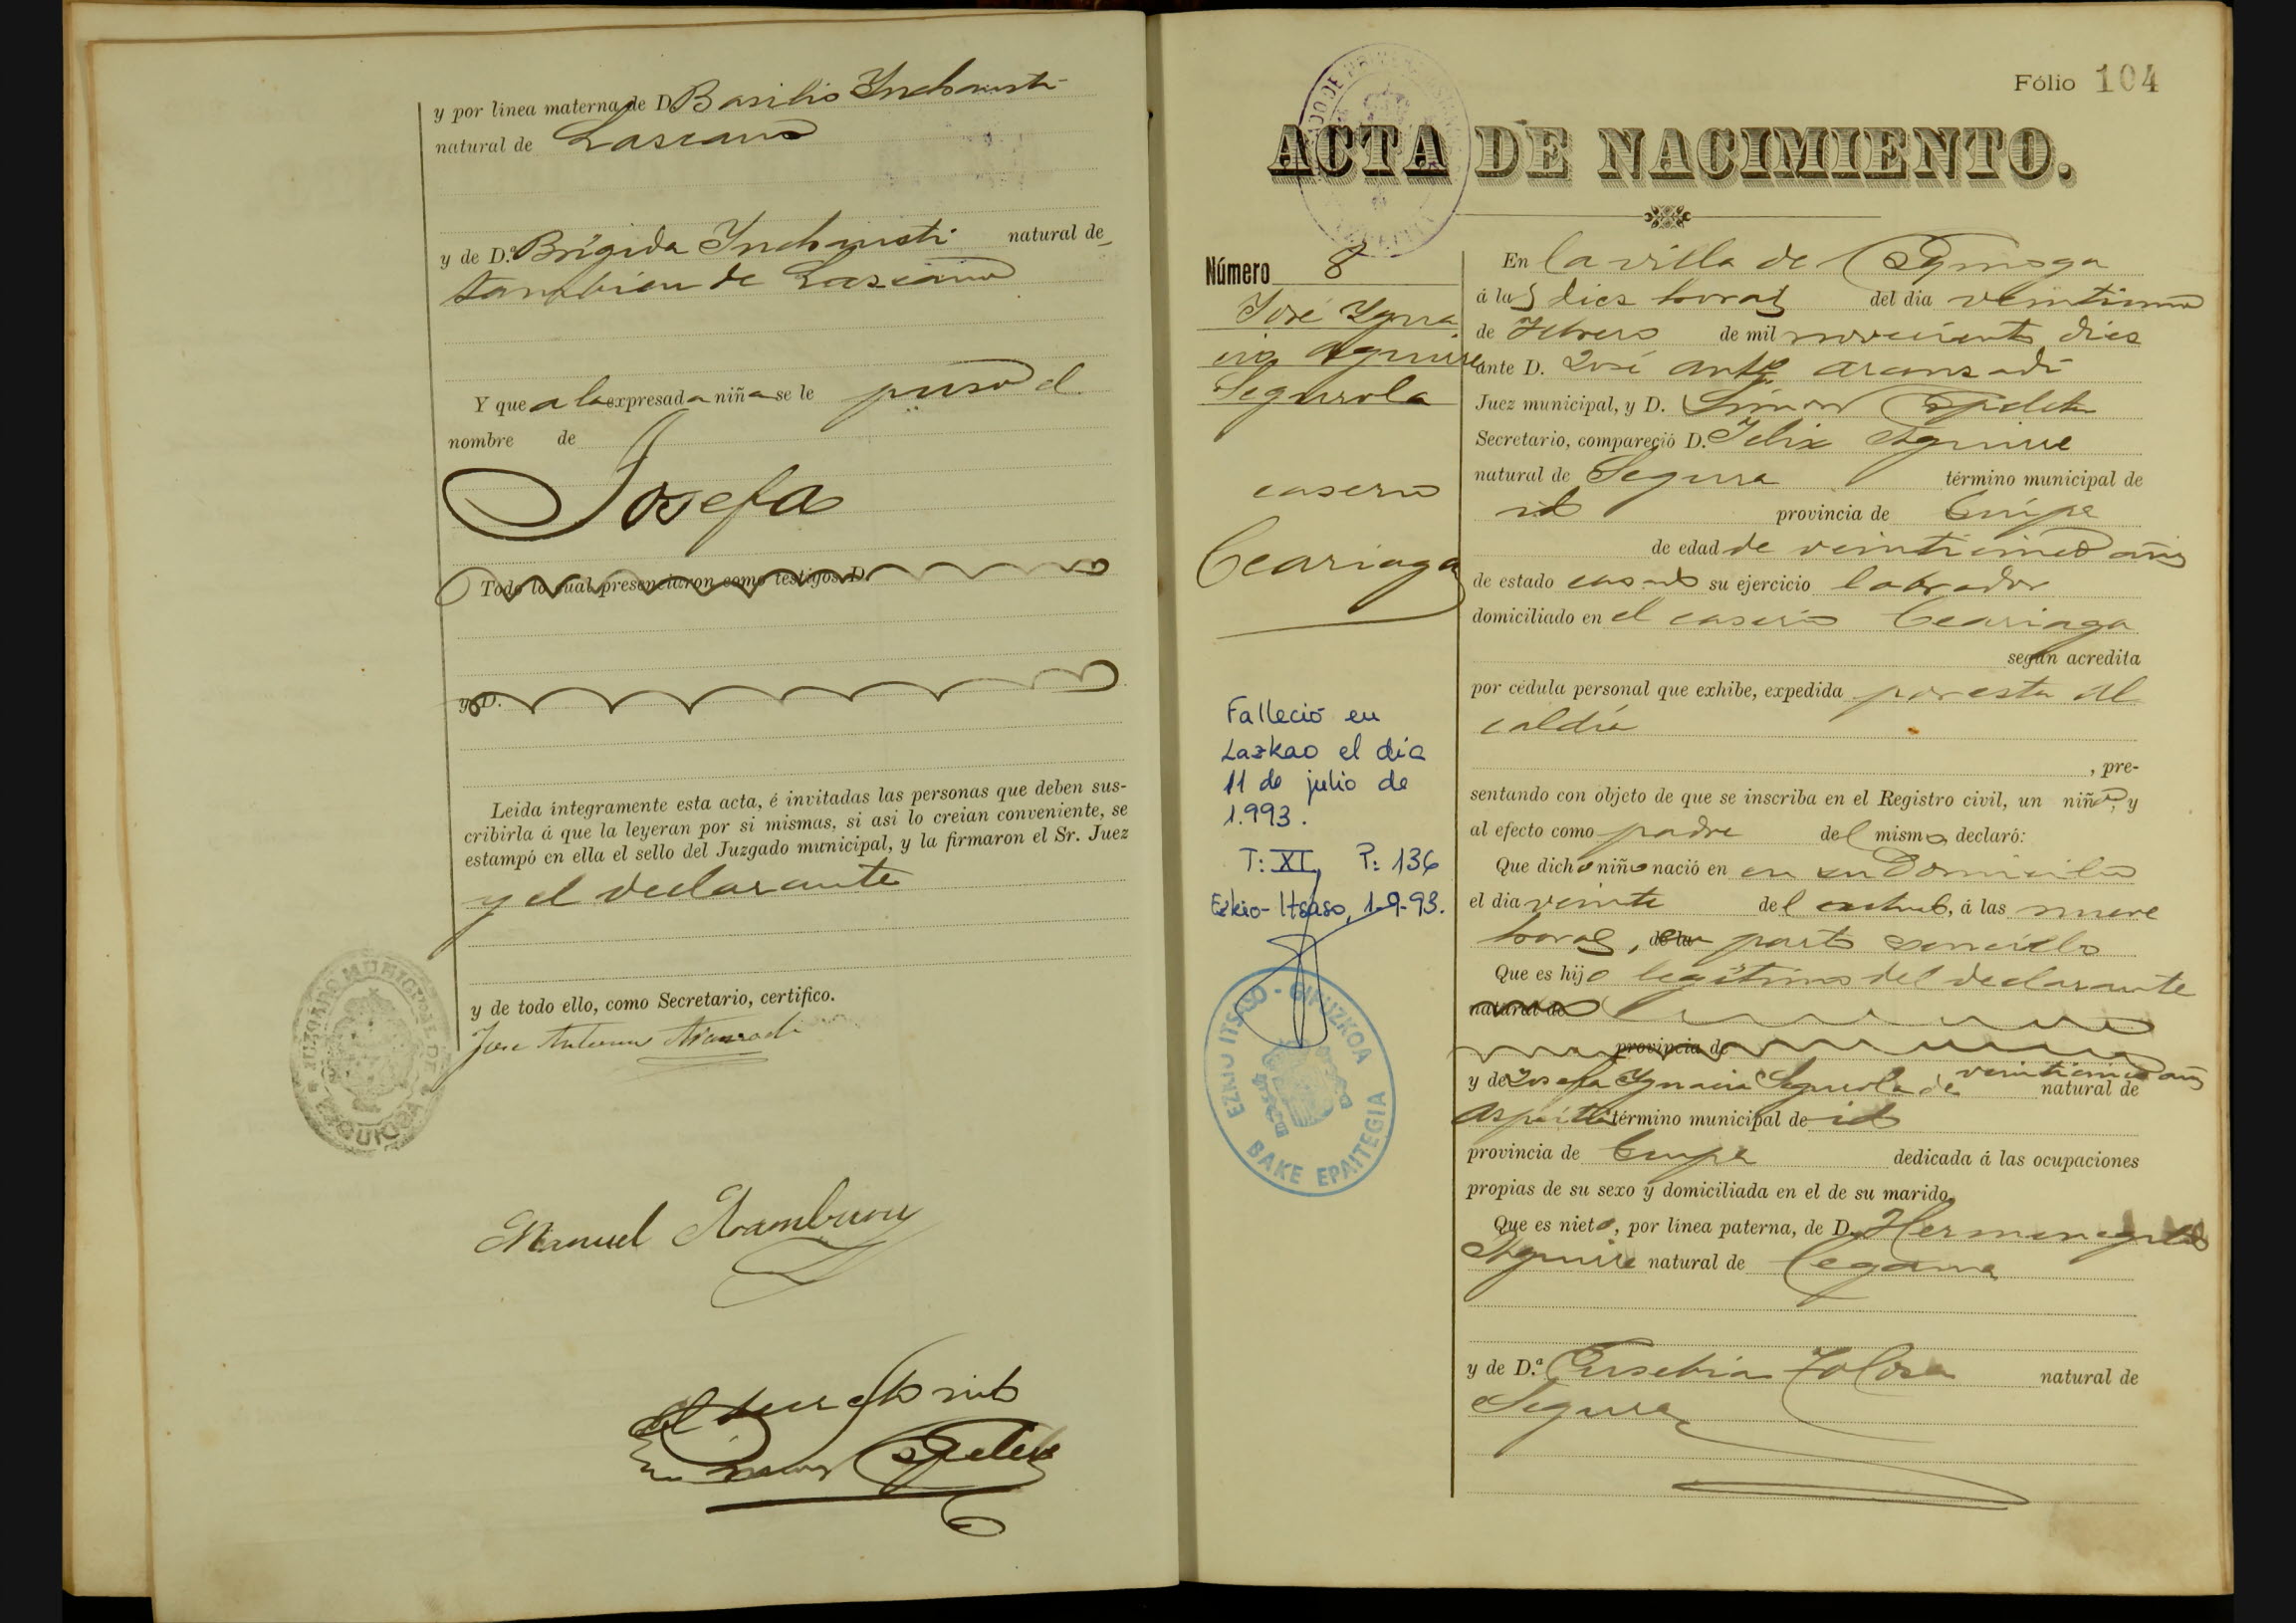 y por línea materna, de D. Basilio Inchausti
natural de Lazcano
y de D.ª Brígida Inchausti natural de
tambien de Lazcano
Y que a la expresada niña se le puso el
nombre de
Josefa
Todo lo cual presenciaron como testigos D.
y D.
Leida íntegramente esta acta, é invitadas las personas que deben sus-
cribirla á que la leyeran por si mismas, si asi lo creian conveniente, se
estampó en ella el sello del Juzgado municipal, y la firmaron el Sr. Juez
y el declarante
y de todo ello, como Secretario, certifico.
Jose Antonio Aranzadi
JUZGADO MUNICIPAL DE
EZQUIOGA
Manuel Aramburu
Fólio 104
ACTA DE NACIMIENTO.
Número 8
José Ygna
cio Aguirre
Segurola
caserio
Ceariaga
Falleció en
Lazkao el día
11 de julio de
1.993.
T: XI, P: 136
Ezkio-Itsaso, 1-9-93.
EZKIO ITSASO - GIPUZKOA
BAKE EPAITEGIA
En la villa de Ezquioga
á las diez horas del dia veintiuno
de Febrero de mil novecientos diez
ante D. José Antº Aranzadi
Juez municipal, y D. Simon
Secretario, compareció D. Felix Aguirre
natural de Segura término municipal de
id provincia de Guipª
de edad de veinticinco años
de estado casado su ejercicio labrador
domiciliado en el caserio Ceariaga
según acredita
por cédula personal que exhibe, expedida por esta al
caldía
, pre-
sentando con objeto de que se inscriba en el Registro civil, un niño, y
al efecto como padre del mismo declaró:
Que dicho niño nació en en su Domicilio
el dia veinte del actual, á las nueve
horas, de parto sencillo
Que es hijo legítimo del declarante
natural de
provincia de
y de Josefa Ygnacia Segurola de veinticinco años natural de
Azpeitia término municipal de id
provincia de Guipª dedicada á las ocupaciones
propias de su sexo y domiciliada en el de su marido.
Que es nieto, por línea paterna, de D. Hermenegildo
Aguirre natural de Cegama
y de D.ª Eusebia Tolosa natural de
Segura